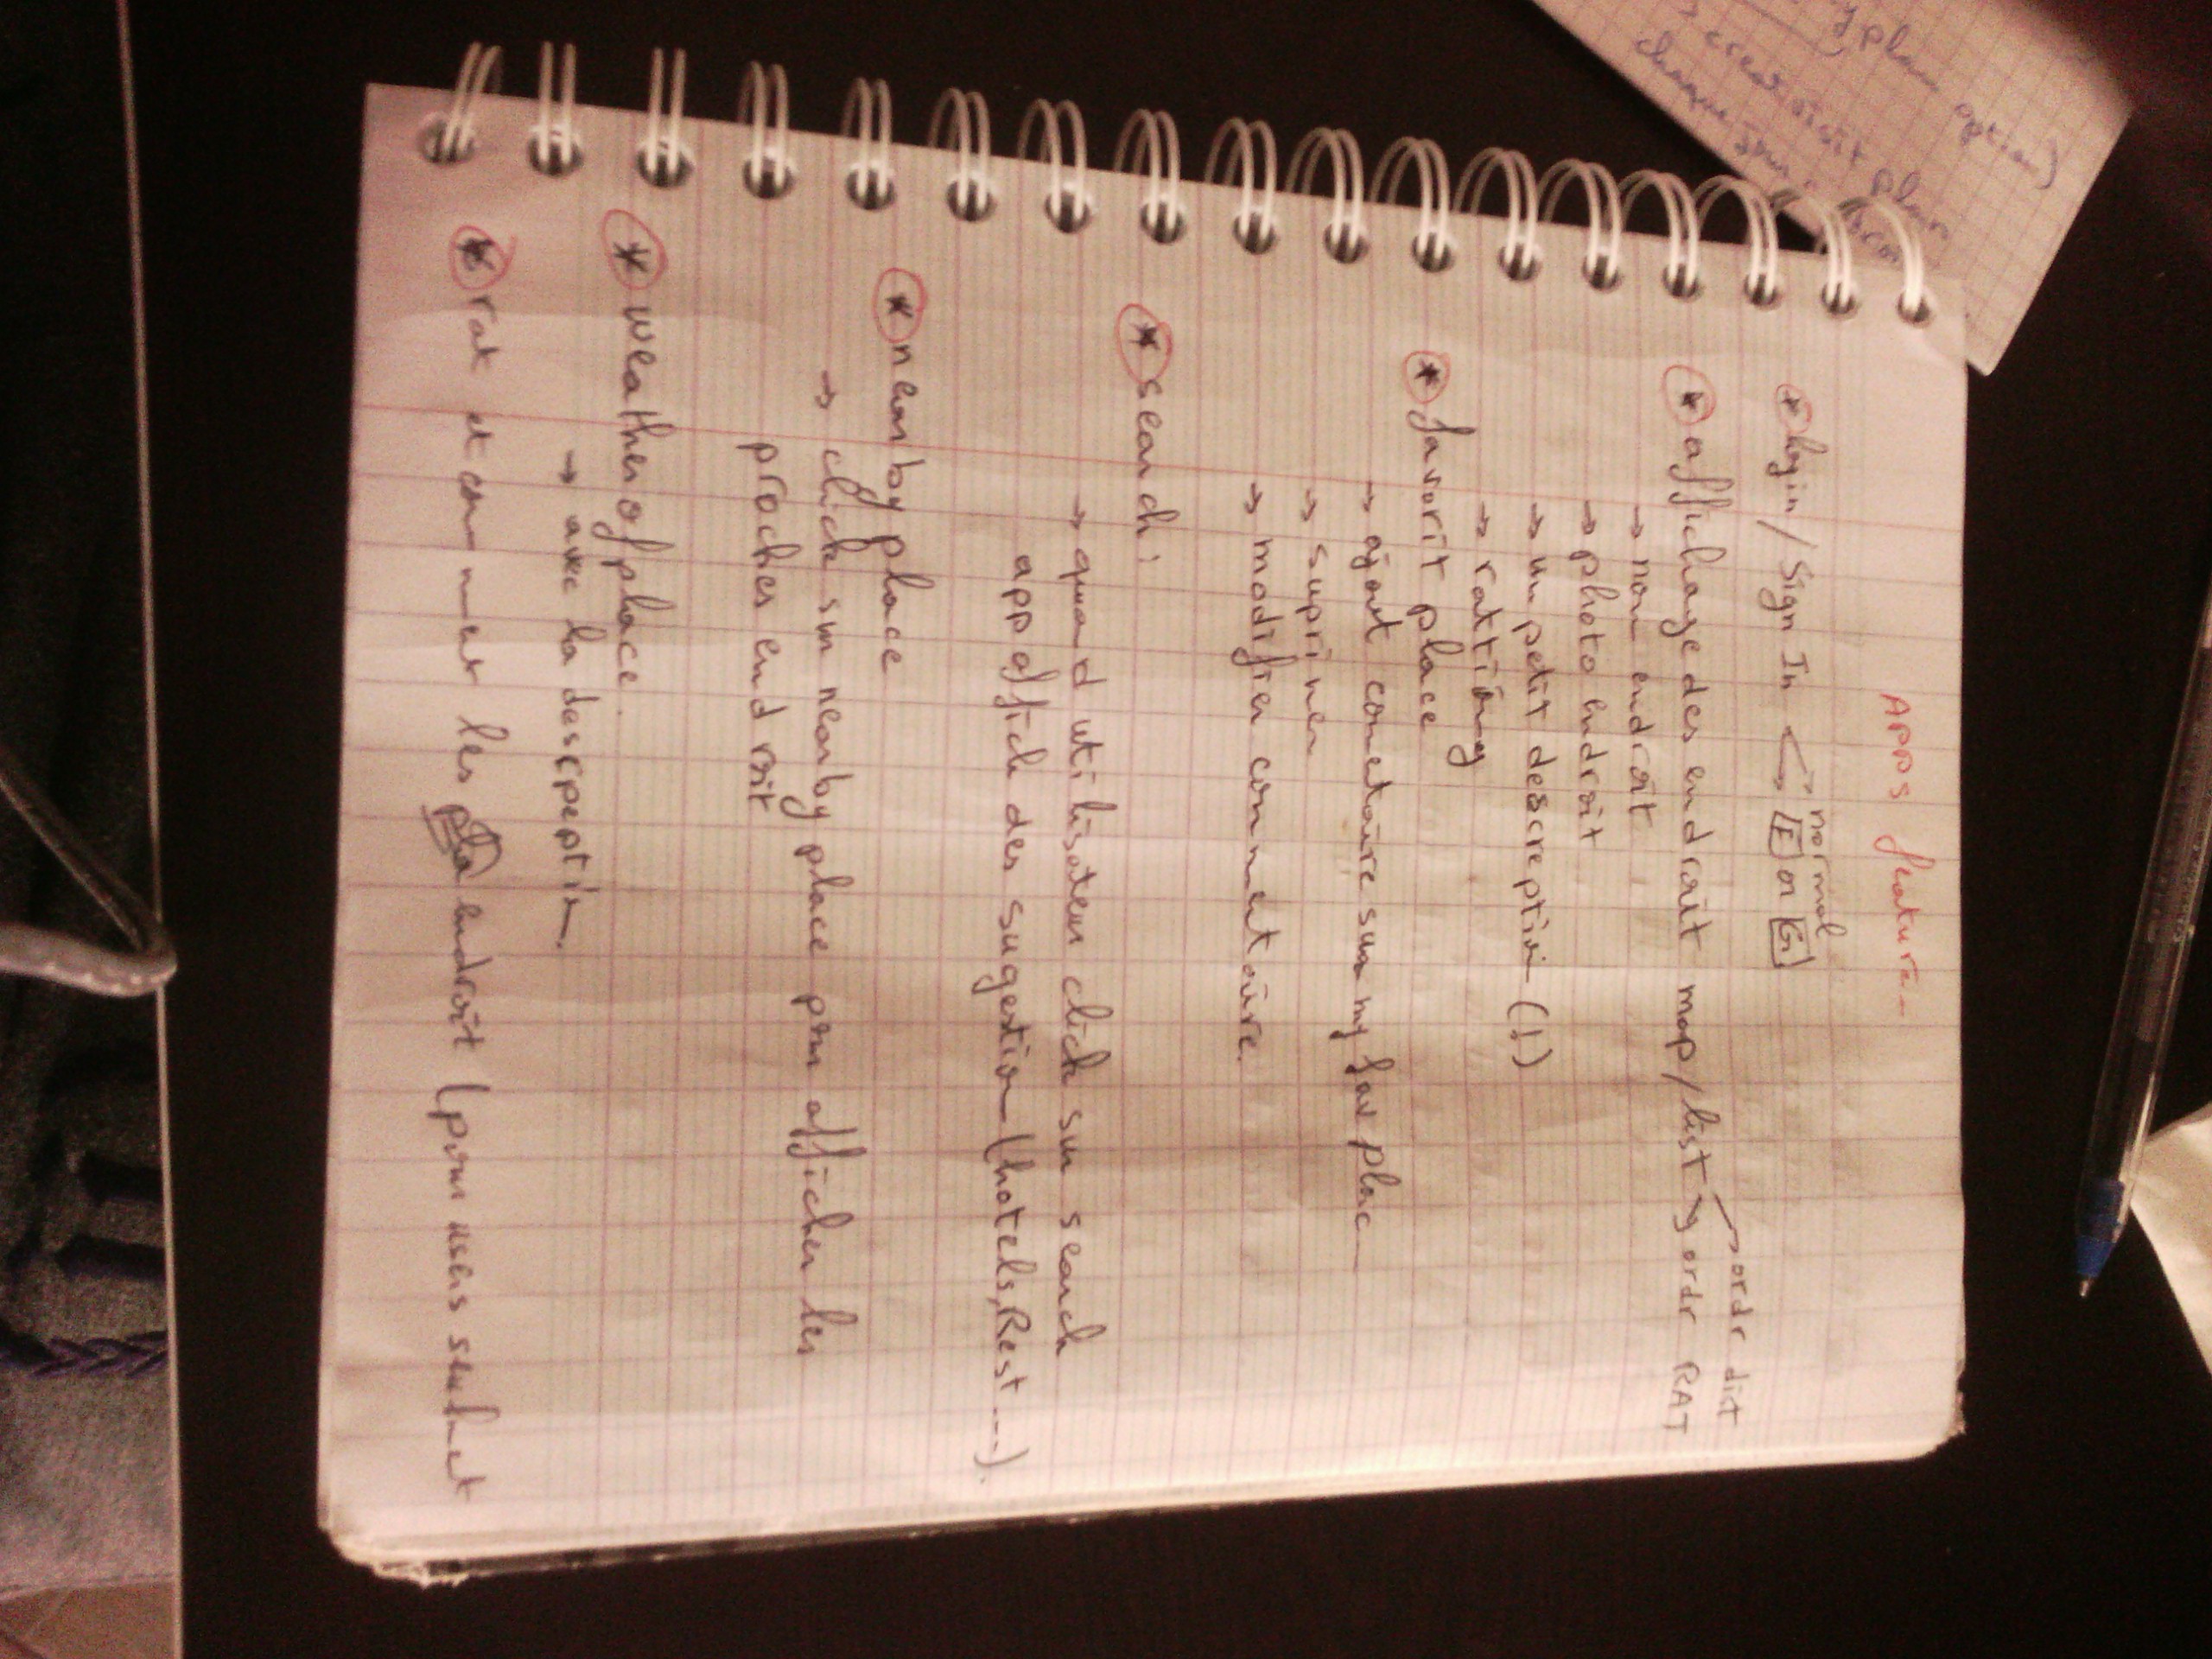 APPS featur
* login / Sign In normal
F or G
ordr dist
* affichage des endroit map/list ordr RAT
→ nom endroit
→ photo endroit
→ un petit descreption (!)
→ ratting
* favorit place
→ ajout cometaire sur my fav plac
→ suprimer
→ modifier commentaire.
* search:
→ quand utilisateur click sur search
app affich des sugestion (hotels, Rest ---).
* nearby place
→ click sur nearby place pour afficher les
proches endroit
* weather of place.
→ avec la descreption.
* rat et comment les endroit (pour users seulmet
option)